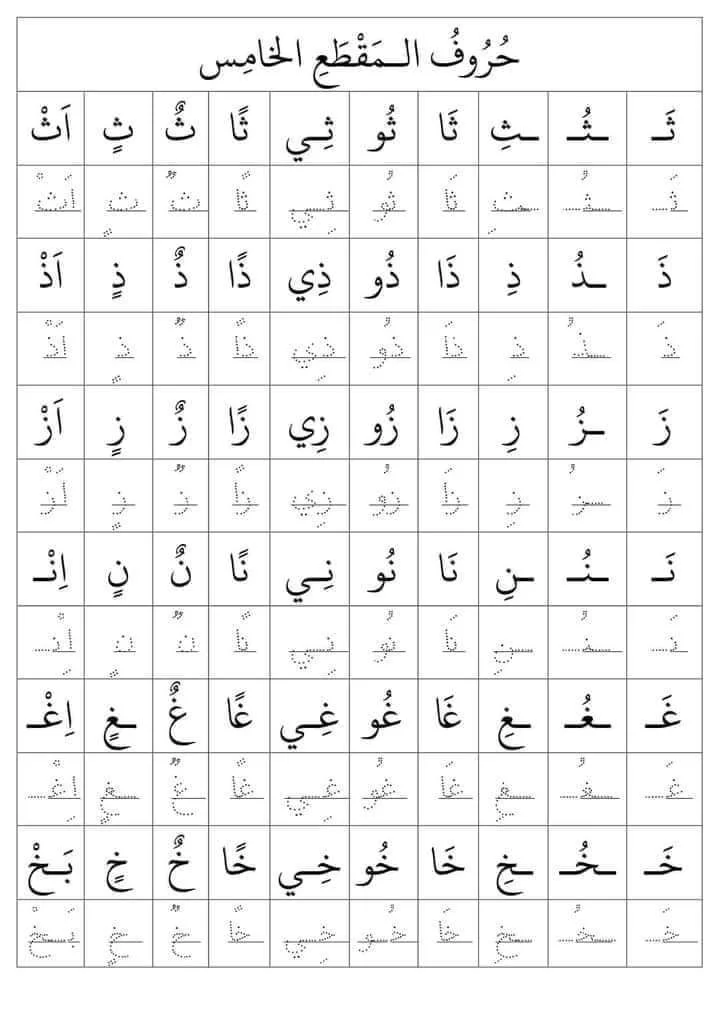 حُرُوفُ الــمَقْطَعِ الخامِس
ثَـ ـثُـ ـثِ ثَا ثُو ثِـي ثًا ثٌ ثٍ اَثْ
ثَـ ـثُـ ـثِ ثَا ثُو ثِـي ثًا ثٌ ثٍ اَثْ
ذَ ـذُ ذِ ذَا ذُو ذِي ذًا ذٌ ذٍ اَذْ
ذَ ـذُ ذِ ذَا ذُو ذِي ذًا ذٌ ذٍ اَذْ
زَ ـزُ زِ زَا زُو زِي زًا زٌ زٍ اَزْ
زَ ـزُ زِ زَا زُو زِي زًا زٌ زٍ اَزْ
نَـ ـنُـ ـنِ نَا نُو نِـي نًا نٌ نٍ اِنْـ
نَـ ـنُـ ـنِ نَا نُو نِـي نًا نٌ نٍ اِنْـ
غَـ ـغُـ ـغِ غَا غُو غِـي غًا غٌ ـغٍ اِغْـ
غَـ ـغُـ ـغِ غَا غُو غِـي غًا غٌ ـغٍ اِغْـ
خَـ ـخُـ ـخِ خَا خُو خِـي خًا خٌ خٍ بَـخْ
خَـ ـخُـ ـخِ خَا خُو خِـي خًا خٌ خٍ بَـخْ